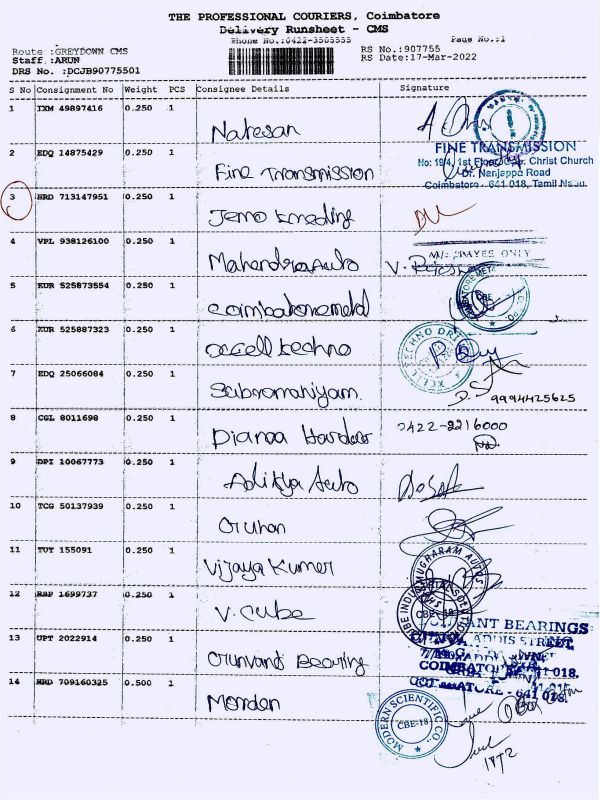 THE PROFESSIONAL COURIERS, Coimbatore
Delivery Runsheet - CMS
Phone No.:0422-3505555 Page No.:1
Route :GREYDOWN CMS RS No.:907755
Staff :ARUN RS Date:17-Mar-2022
DRS No. :DCJB90775501
S No Consignment No Weight PCS Consignee Details Signature
1 IXM 49897416 0.250 1 Natesan
2 EDQ 14875429 0.250 1 Fine Transmission
FINE TRANSMISSION
No: 19/4, 1st Floor, Opp. Christ Church
Dr. Nanjappa Road
Coimbatore - 641 018, Tamil Nadu.
3 HRD 713147951 0.250 1
4 VPL 938126100 0.250 1 Mahendra Auto
5 KUR 525873554 0.250 1 Coimbatore metal
6 KUR 525887323 0.250 1 Excell techno
7 EDQ 25066084 0.250 1 Subramaniyam.
9994425625
8 CGL 8011698 0.250 1 Diana
0422-2216000
9 DPI 10067773 0.250 1 Aditya Auto
10 TCG 50137939 0.250 1
11 TUT 155091 0.250 1 Vijaya Kumer
12 RSP 1699737 0.250 1 V. Cube
CBE-18
13 UPT 2022914 0.250 1 Bearing
BEARINGS
COIMBATORE - 641 018.
14 HRD 709160325 0.500 1 Morden
MODERN SCIENTIFIC CO.,
CBE-18